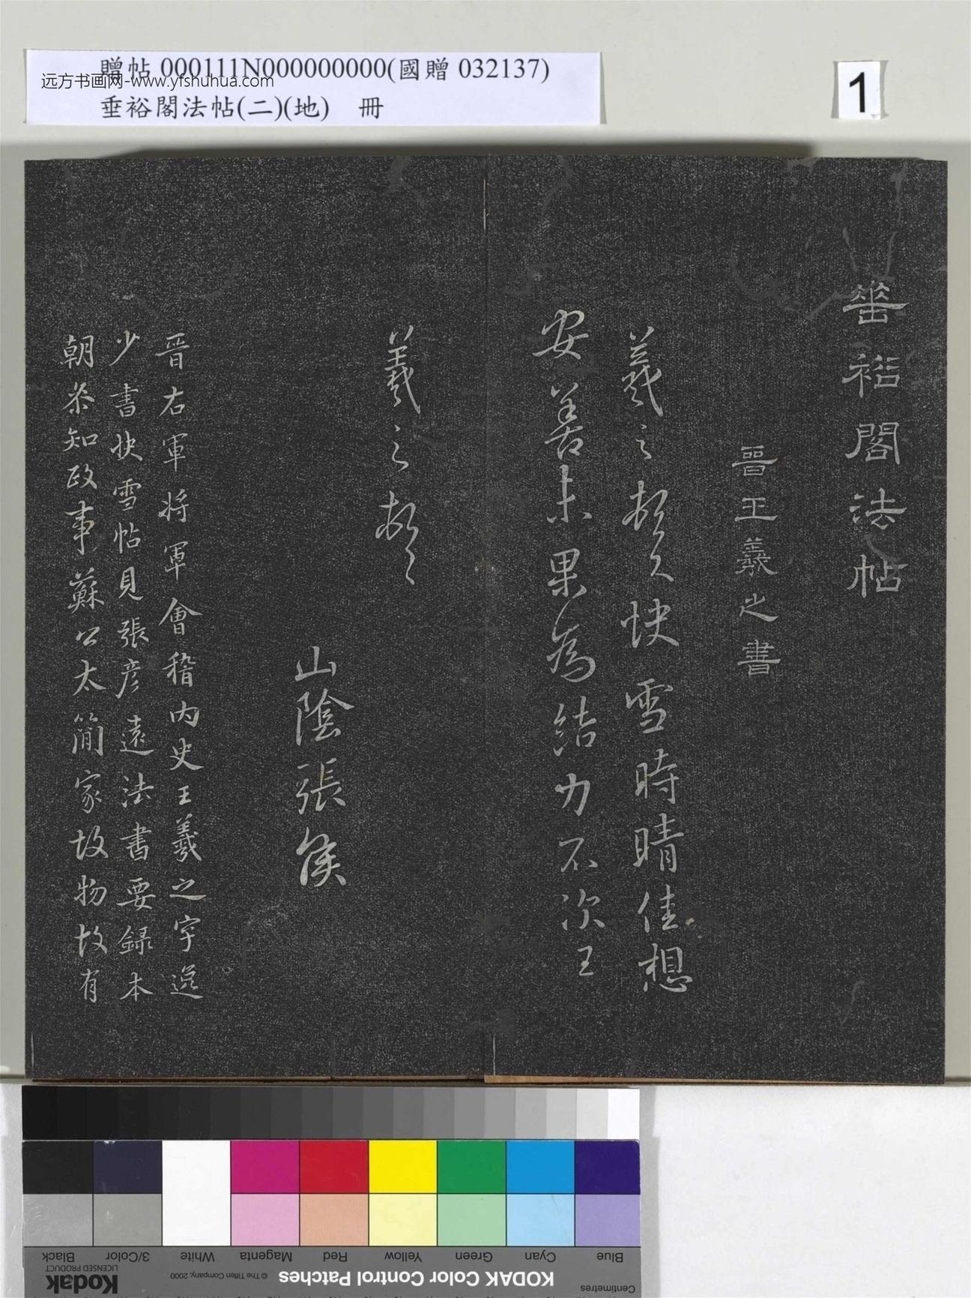 贈帖 000111N000000000(國贈 032137)
远方书画网-www.yfshuhua.com
垂裕閣法帖(二)(地) 冊
1
垂裕閣法帖
晉王羲之書
羲之頓首快雪時晴佳想
安善未果為結力不次王
羲之頓首
山陰張侯
晉右軍將軍會稽內史王羲之字逸
少書快雪帖見張彥遠法書要錄本
朝參知政事蘇公太簡家故物故有
Black
3/Color
White
Magenta
Red
Yellow
Green
Cyan
Blue
Kodak
LICENSED PRODUCT
© The Tiffen Company, 2000
KODAK Color Control Patches
Centimetres